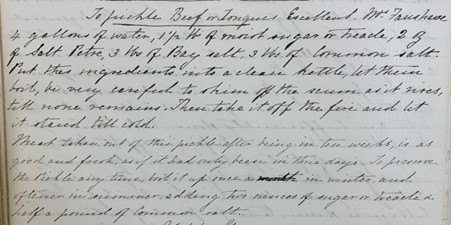 To pickle Beef or Tongues Excellent. Mrs
4 gallons of water, 1 1/2 lb of moist sugar or treacle, 2 oz
of Salt Petre, 3 lbs of Bay salt, 3 lbs of Common salt.
Put these ingredients into a clean kettle, let them
boil, be very careful to skim off the scum as it rises,
till none remains. Then take it off the fire and let
it stand till cold.
Meat taken out of this pickle after being in ten weeks, is as
good and fresh, as if it had only been in three days. To preserve
the Pickle any time, boil it up once a month in winter, and
oftener in summer, adding two ounces of sugar or treacle &
half a pound of Common salt.